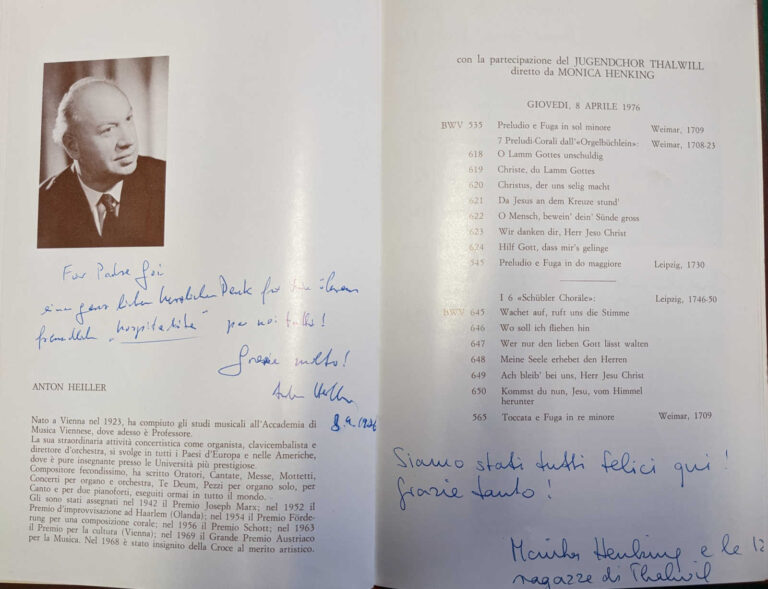 Für Padre Goi
einen ganz lieben herzlichen Dank für
freundliche "hospitalità" per noi tutti!
Grazie molto!
Anton Heiller
8.4.1976
ANTON HEILLER
Nato a Vienna nel 1923, ha compiuto gli studi musicali all'Accademia di
Musica Viennese, dove adesso è Professore.
La sua straordinaria attività concertistica come organista, clavicembalista e
direttore d'orchestra, si svolge in tutti i Paesi d'Europa e nelle Americhe,
dove è pure insegnante presso le Università più prestigiose.
Compositore fecondissimo, ha scritto Oratori, Cantate, Messe, Mottetti,
Concerti per organo e orchestra, Te Deum, Pezzi per organo solo, per
Canto e per due pianoforti, eseguiti ormai in tutto il mondo.
Gli sono stati assegnati nel 1942 il Premio Joseph Marx; nel 1952 il
Premio d'improvvisazione ad Haarlem (Olanda); nel 1954 il Premio Förde-
rung per una composizione corale; nel 1956 il Premio Schott; nel 1963
il Premio per la cultura (Vienna); nel 1969 il Grande Premio Austriaco
per la Musica. Nel 1968 è stato insignito della Croce al merito artistico.
con la partecipazione del JUGENDCHOR THALWILL
diretto da MONICA HENKING
GIOVEDI, 8 APRILE 1976
BWV 535 Preludio e Fuga in sol minore Weimar, 1709
7 Preludi-Corali dall'«Orgelbüchlein»: Weimar, 1708-23
618 O Lamm Gottes unschuldig
619 Christe, du Lamm Gottes
620 Christus, der uns selig macht
621 Da Jesus an dem Kreuze stund'
622 O Mensch, bewein' dein' Sünde gross
623 Wir danken dir, Herr Jesu Christ
624 Hilf Gott, dass mir's gelinge
545 Preludio e Fuga in do maggiore Leipzig, 1730
I 6 «Schübler Choräle»: Leipzig, 1746-50
BWV 645 Wachet auf, ruft uns die Stimme
646 Wo soll ich fliehen hin
647 Wer nur den lieben Gott lässt walten
648 Meine Seele erhebet den Herren
649 Ach bleib' bei uns, Herr Jesu Christ
650 Kommst du nun, Jesu, vom Himmel
herunter
565 Toccata e Fuga in re minore Weimar, 1709
Siamo stati tutti felici qui!
Grazie tanto!
Monika Henking e le 12
ragazze di Thalwil